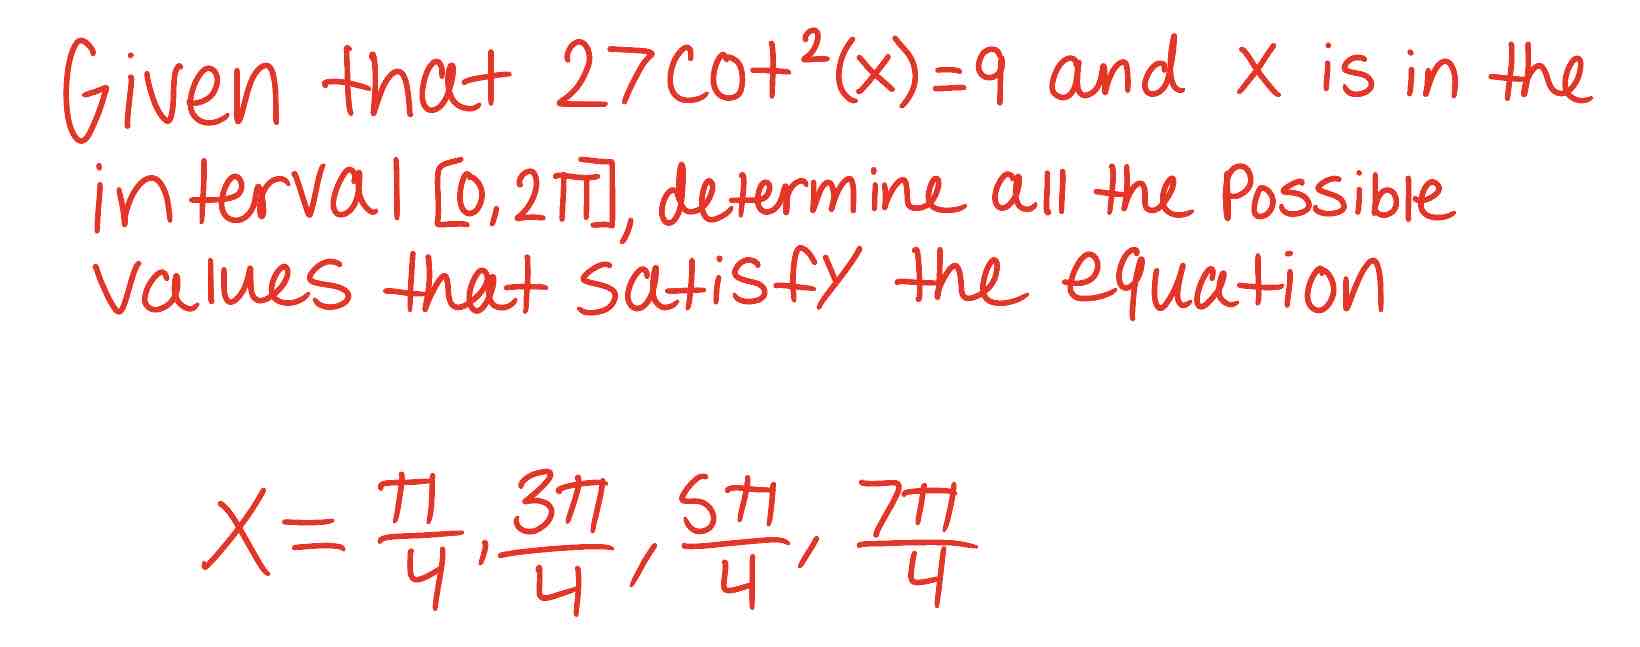 Given that 27Cot²(x)=9 and X is in the
interval [0,2π], determine all the Possible
values that satisfy the equation
X = π/4, 3π/4, 5π/4, 7π/4